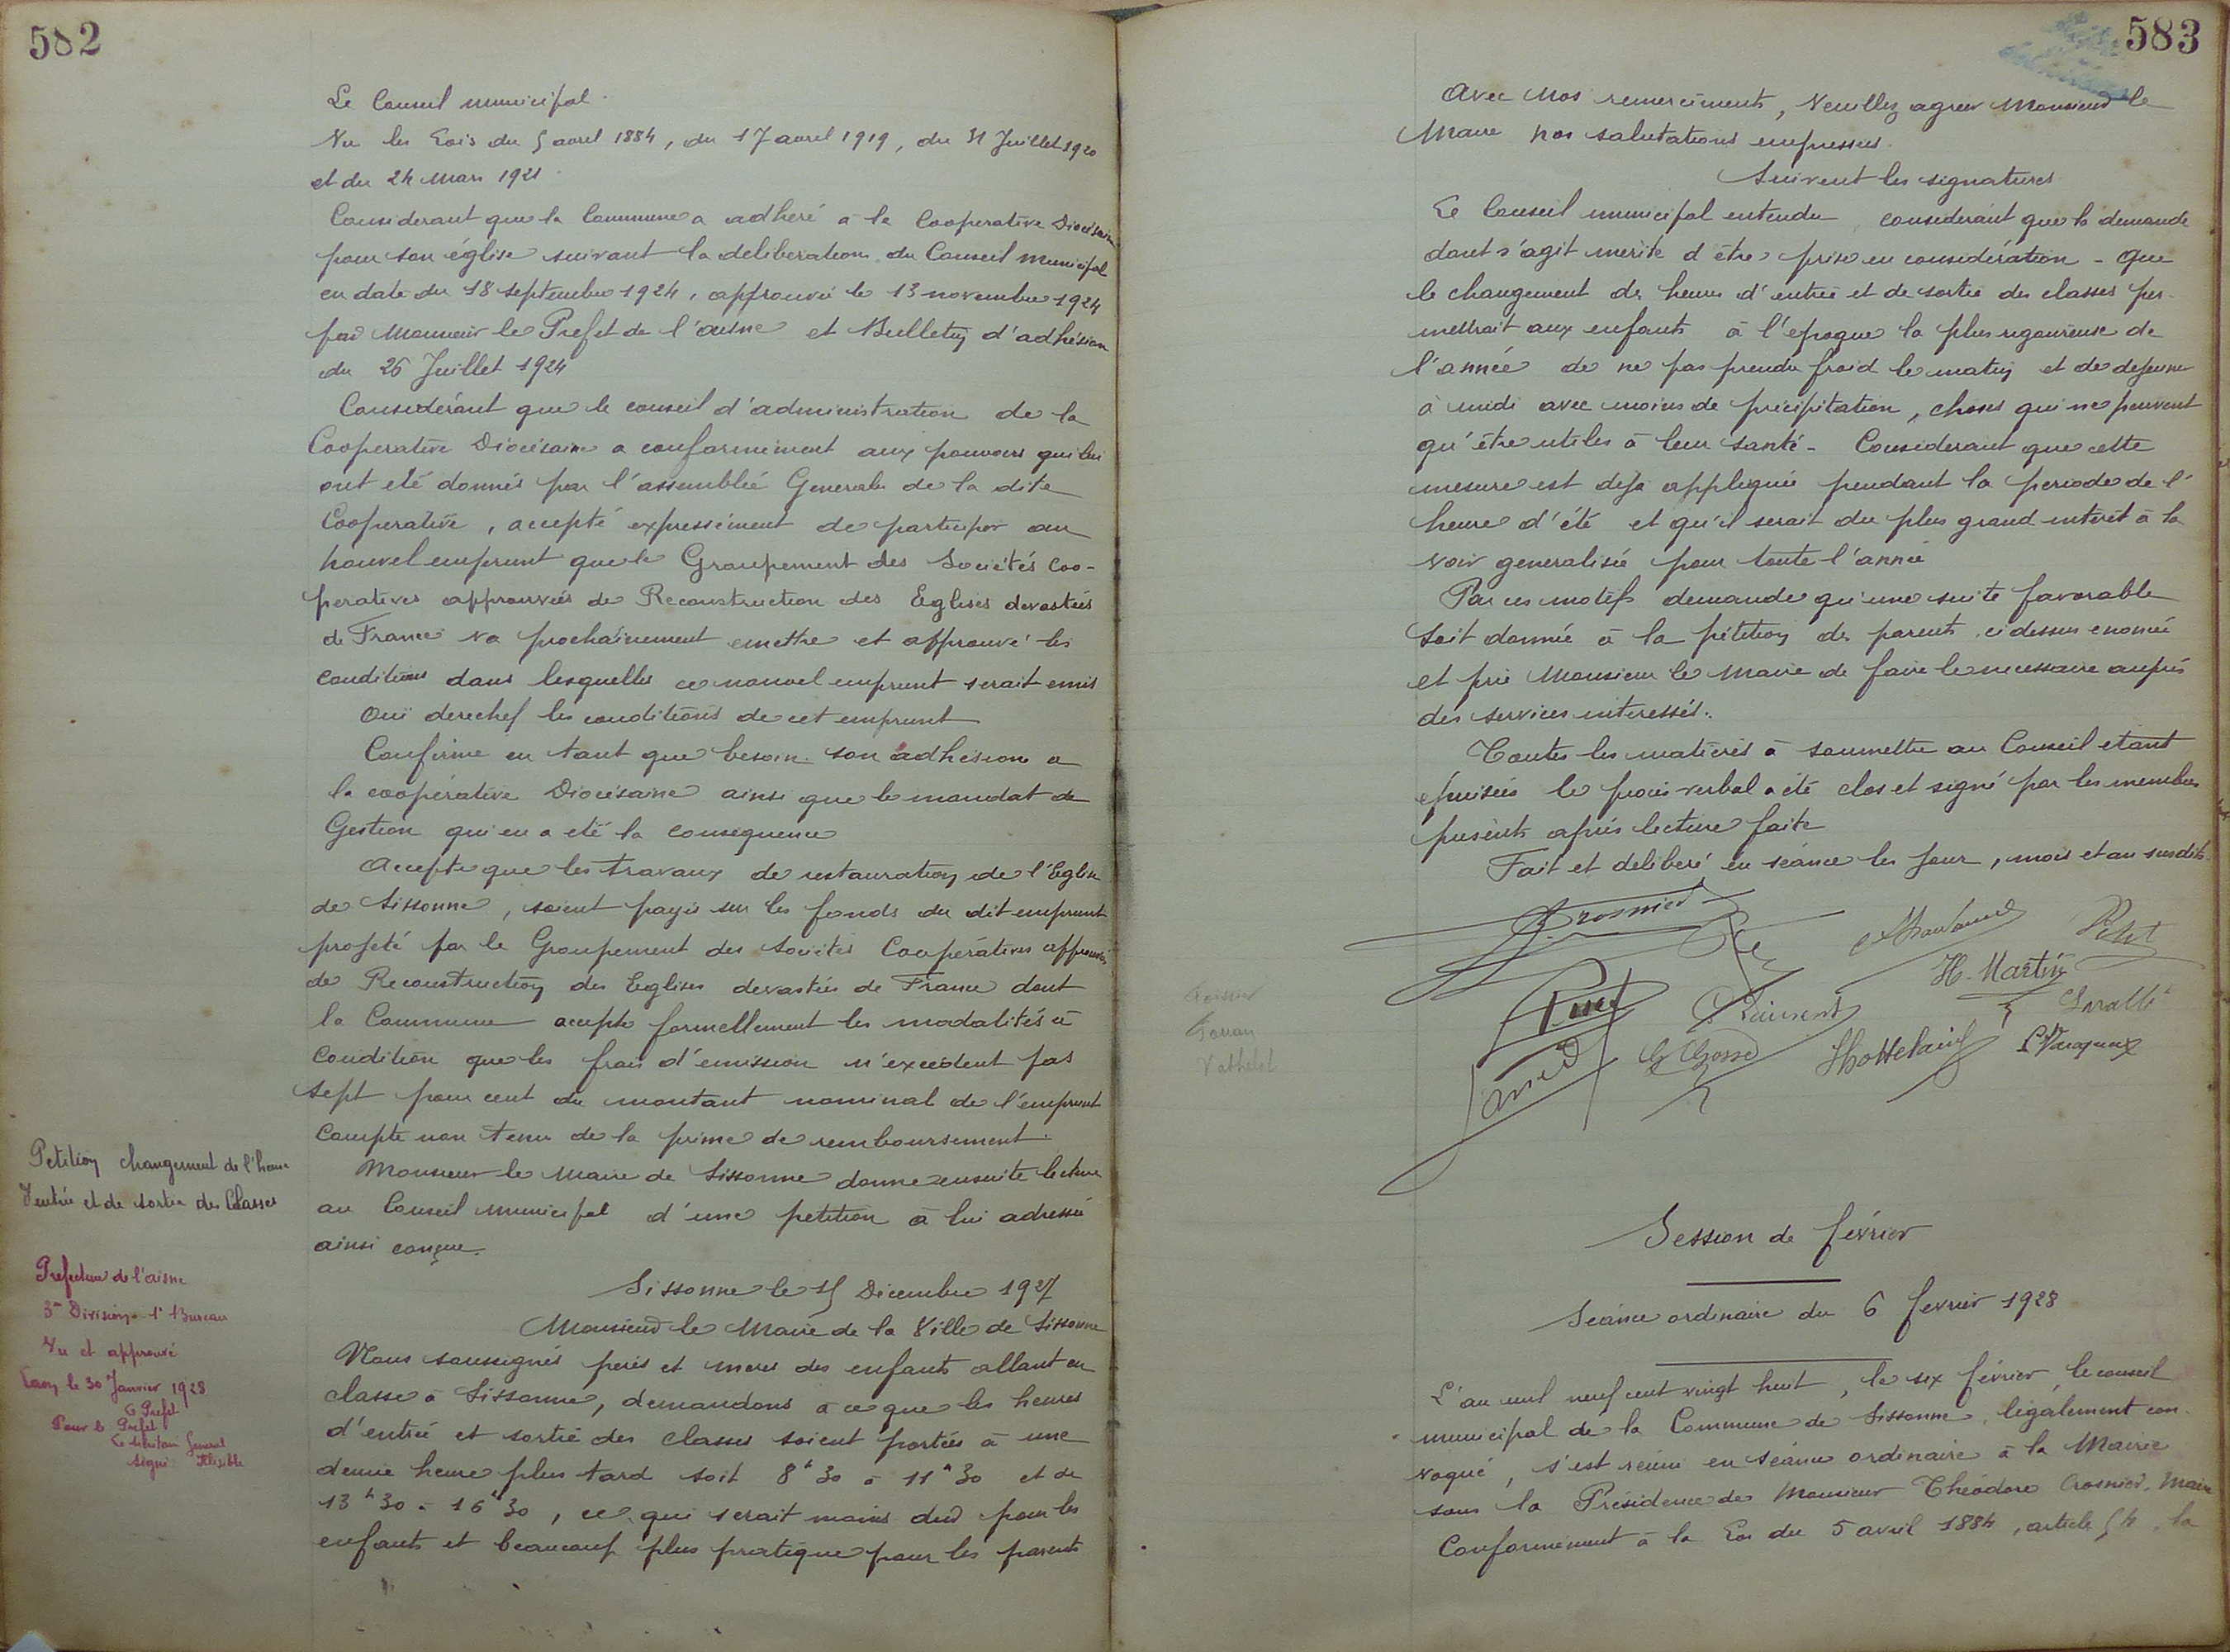 582
Le Conseil municipal.
Vu les Lois du 5 avril 1884, du 17 avril 1919, du 31 Juillet 1920
et du 24 Mars 1921.
Considerant que la Commune a adhéré à la Cooperative Diocésaine
pour son église suivant la deliberation du Conseil Municipal
en date du 18 septembre 1924, approuvée le 13 novembre 1924
par Monsieur le Prefet de l'aisne et Bulletin d'adhésion
du 26 Juillet 1924
Considérant que le conseil d'administration de la
Cooperative Diocésaine a conformément aux pouvoirs qui lui
ont été donnés par l'assemblée Generale de la dite
Cooperative, accepté expressément de participer au
nouvel emprunt que le Groupement des Sociétés Coo-
peratives approuvées de Reconstruction des Eglises devastées
de France va prochainement emettre et approuvé les
conditions dans lesquelles ce nouvel emprunt serait emis
Oui derechef les conditions de cet emprunt
Confirme en tant que besoin son adhésion a
la coopérative Diocésaine ainsi que le mandat de
Gestion qui en a été la consequence
Accepte que les travaux de restauration de l'Eglise
de Sissonne, soient payés sur les fonds du dit emprunt
projeté par le Groupement des Sociétés Coopératives approuvées
de Reconstruction des Eglises devastées de France dont
la Commune accepte formellement les modalités à
condition que les frais d'émission n'excèdent pas
sept pour cent du montant nominal de l'emprunt
compte non tenu de la prime de remboursement.
Petition changement de l'heure
d'entrée et de sortie des Classes
Monsieur le Maire de Sissonne donne ensuite lecture
au Conseil Municipal d'une petition à lui adressée
ainsi conçue.
Prefecture de l'aisne
3me Division - 1r Bureau
Vu et approuvé
Laon le 30 Janvier 1928
Le Prefet
Pour le Prefet
Le Secretaire General
Signé: Illisible
Sissonne le 15 Décembre 1927
Monsieur le Maire de la Ville de Sissonne
Nous soussignés peres et meres des enfants allant en
classe à Sissonne, demandons à ce que les heures
d'entrée et sortie des classes soient portées à une
demie heure plus tard soit 8h30 à 11h30 et de
13h30 à 16h30, ce qui serait moins dur pour les
enfants et beaucoup plus pratique pour les parents
583
Avec nos remerciments, Veuillez agreer Monsieur le
Maire nos salutations empressées.
Suivent les signatures
Le Conseil municipal entendu, considerant que la demande
dont s'agit mérite d'être prise en considération - que
le changement des heures d'entrée et de sortie des classes per-
mettrait aux enfants à l'époque la plus rigoureuse de
l'année de ne pas prendre froid le matin et de dejeuner
à midi avec moins de précipitation, choses qui ne peuvent
qu'être utiles à leur santé - Considerant que cette
mesure est déja appliquée pendant la periode de l'
heure d'été et qu'il serait du plus grand intérêt à la
voir generalisée pour toute l'année
Par ces motifs demande qu'une suite favorable
soit donnée à la pétition des parents ci dessus enoncée
et prie Monsieur le Maire de faire le necessaire auprès
des services interessés.
Toutes les matières à soumettre au Conseil etant
épuisées le procès verbal a été clos et signé par les membres
présents après lecture faite
Fait et deliberé en séance les jour, mois et an susdits.
Crosnier
Petit
H. Martin
Laurent
G. Grosse
Hottelain
P. Varoqueaux
Vathelet
Session de février
Séance ordinaire du 6 fevrier 1928
L'an mil neuf cent vingt huit, le six février, le conseil
municipal de la Commune de Sissonne, légalement con-
voqué, s'est réuni en séance ordinaire à la Mairie
sous la Présidence de Monsieur Théodore Crosnier, Maire
Conformément à la Loi du 5 avril 1884, article 54, la